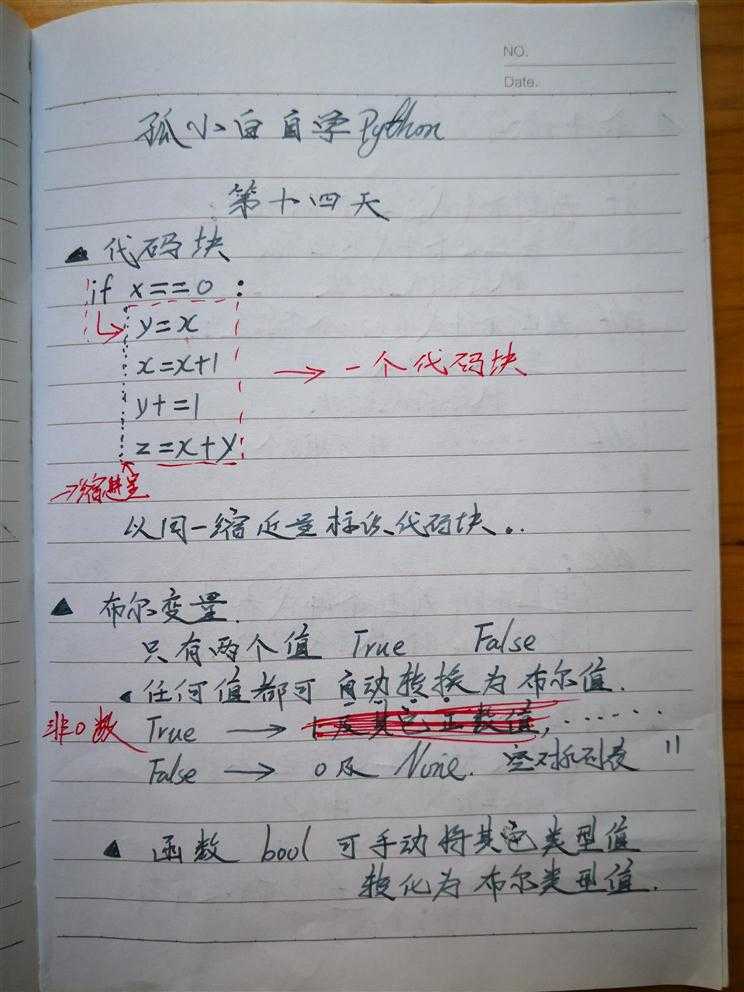 NO.
Date.
孤小白自学Python
第十四天
▲ 代码块
if x==0 :
y=x
x=x+1
→ 一个代码块
y+=1
z=x+y
→缩进量
以同一缩进量标识代码块..
▲ 布尔变量.
只有两个值 True False
任何值都可自动转换为布尔值.
非0数
True → 1及其它正数值, ......
False → 0及 None. 空对象列表 "
▲ 函数 bool 可手动将其它类型值
转化为布尔类型值.